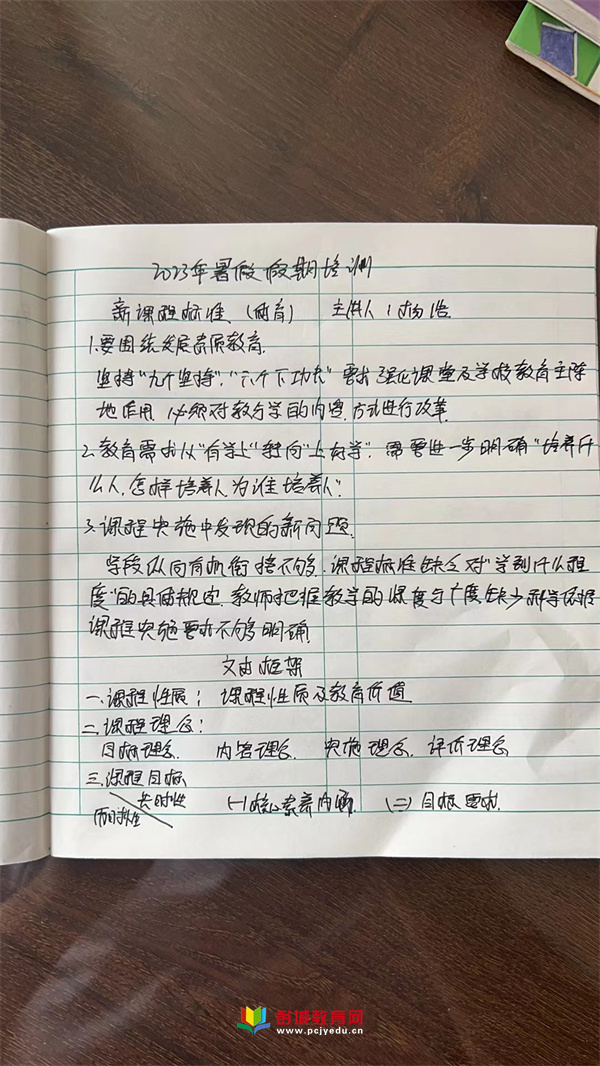 2023年暑假假期培训
新课程标准 (体育) 主讲人:杨浩
1.要围绕发展素质教育.
坚持"九个坚持","六个下功夫"要求强化课堂及学校教育主阵
地作用,必须对教与学的内容、方式进行改革.
2.教育需求从"有学上"转向"上好学".需要进一步明确"培养什
么人,怎样培养人,为谁培养人".
3.课程实施中发现的新问题.
学段纵向有机衔接不够.课程标准缺乏对"学到什么程
度"的具体规定,教师把握教学的深度与广度缺少科学依据
课程实施要求不够明确.
文本框架
一.课程性质: 课程性质及教育价值
二.课程理念:
目标理念. 内容理念. 实施理念. 评价理念
三.课程目标
共时性 (一)核心素养内涵. (二)目标要求.
历时性
彭城教育网
www.pcjyedu.cn